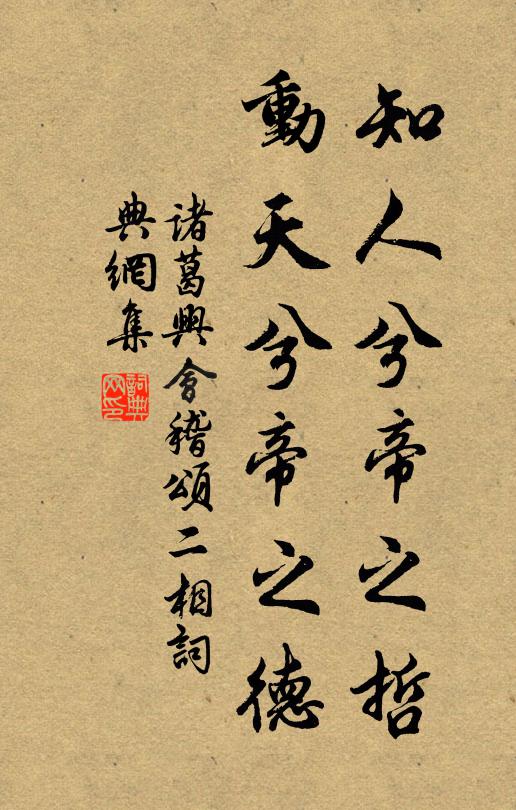 知人兮帝之哲
動天兮帝之德
諸葛興會稽頌二相詞
典網集
詞典
网印